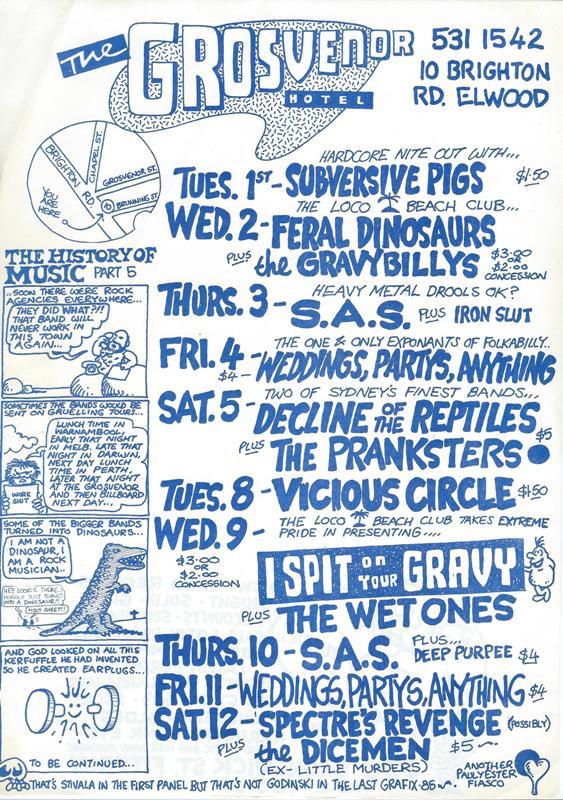 The GROSVENOR HOTEL
531 1542
10 BRIGHTON
RD. ELWOOD
BRIGHTON RD
CHAPEL ST.
GROSVENOR ST.
BRUNNING ST.
YOU ARE HERE
HARDCORE NITE OUT WITH...
TUES. 1ST - SUBVERSIVE PIGS $1.50
THE LOCO BEACH CLUB...
WED. 2 - FERAL DINOSAURS
PLUS the GRAVYBILLYS
$3.00
OR
$2.00
CONCESSION
HEAVY METAL DROOLS OK?
THURS. 3 - S.A.S. PLUS IRON SLUT
THE ONE & ONLY EXPONANTS OF FOLKABILLY..
FRI. 4 - WEDDINGS, PARTYS, ANYTHING
$4
TWO OF SYDNEY'S FINEST BANDS...
SAT. 5 - DECLINE OF THE REPTILES
PLUS THE PRANKSTERS
$5
TUES. 8 - VICIOUS CIRCLE $1.50
WED. 9 - THE LOCO BEACH CLUB TAKES EXTREME
PRIDE IN PRESENTING....
$3.00
OR
$2.00
CONCESSION
I SPIT on YOUR GRAVY
PLUS THE WET ONES
THURS. 10 - S.A.S. PLUS... DEEP PURPEE $4
FRI. 11 - WEDDINGS, PARTYS, ANYTHING $4
SAT. 12 - SPECTRE'S REVENGE (POSSIBLY)
PLUS the DICEMEN $5
(EX-LITTLE MURDERS)
ANOTHER
PAULYESTER
FIASCO
THE HISTORY OF
MUSIC PART 5
..SOON THERE WERE ROCK
AGENCIES EVERYWHERE...
THEY DID WHAT?!!
THAT BAND WILL
NEVER WORK IN
THIS TOWN
AGAIN...
SOMETIMES THE BANDS WOULD BE
SENT ON GRUELLING TOURS...
LUNCH TIME IN
WARNAMBOOL,
EARLY THAT NIGHT
IN MELB. LATE THAT
NIGHT IN DARWIN,
NEXT DAY LUNCH
TIME IN PERTH,
LATER THAT NIGHT
AT THE GROSVENOR
AND THEN BILLBOARD
NEXT DAY...
WORK
SHIT
SOME OF THE BIGGER BANDS
TURNED INTO DINOSAURS...
I AM NOT A
DINOSAUR, I
AM A ROCK
MUSICIAN..
HEY LOOKIE THERE..!
HORSLY JUST TURNED
INTO A DINOSAUR!!
HOLY SHEET!!
AND GOD LOOKED ON ALL THIS
KERFUFFLE HE HAD INVENTED
SO HE CREATED EARPLUGS...
TO BE CONTINUED...
THAT'S STIVALA IN THE FIRST PANEL BUT THAT'S NOT GODINSKI IN THE LAST GRAFIX·86